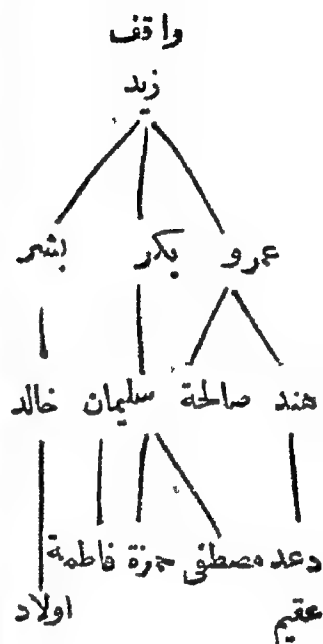 واقف
زيد
عمرو بكر بشر
هند صالحة سليمان خالد
دعد مصطفى حمزة فاطمة
عقيم اولاد